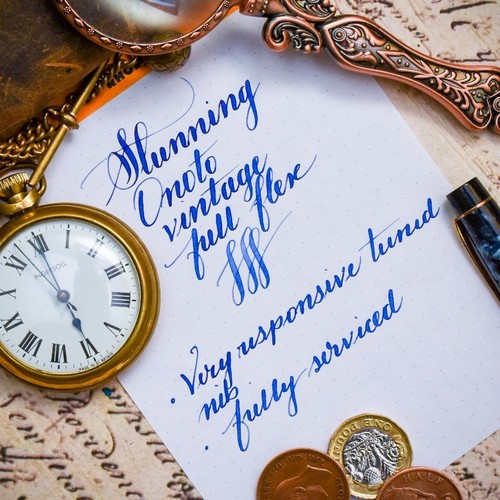 Stunning
Onoto
vintage
full flex
fff
• Very responsive tuned
nib
• fully serviced
INGERSOLL
XII
I
II
III
IIII
V
VI
VII
VIII
IX
X
XI
ONE POUND
HALF